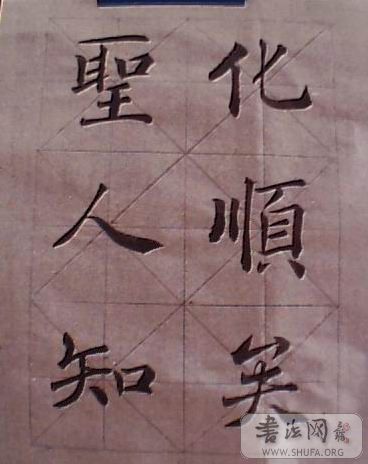 化順矣
聖人知
書法网
WWW.SHUFA.ORG